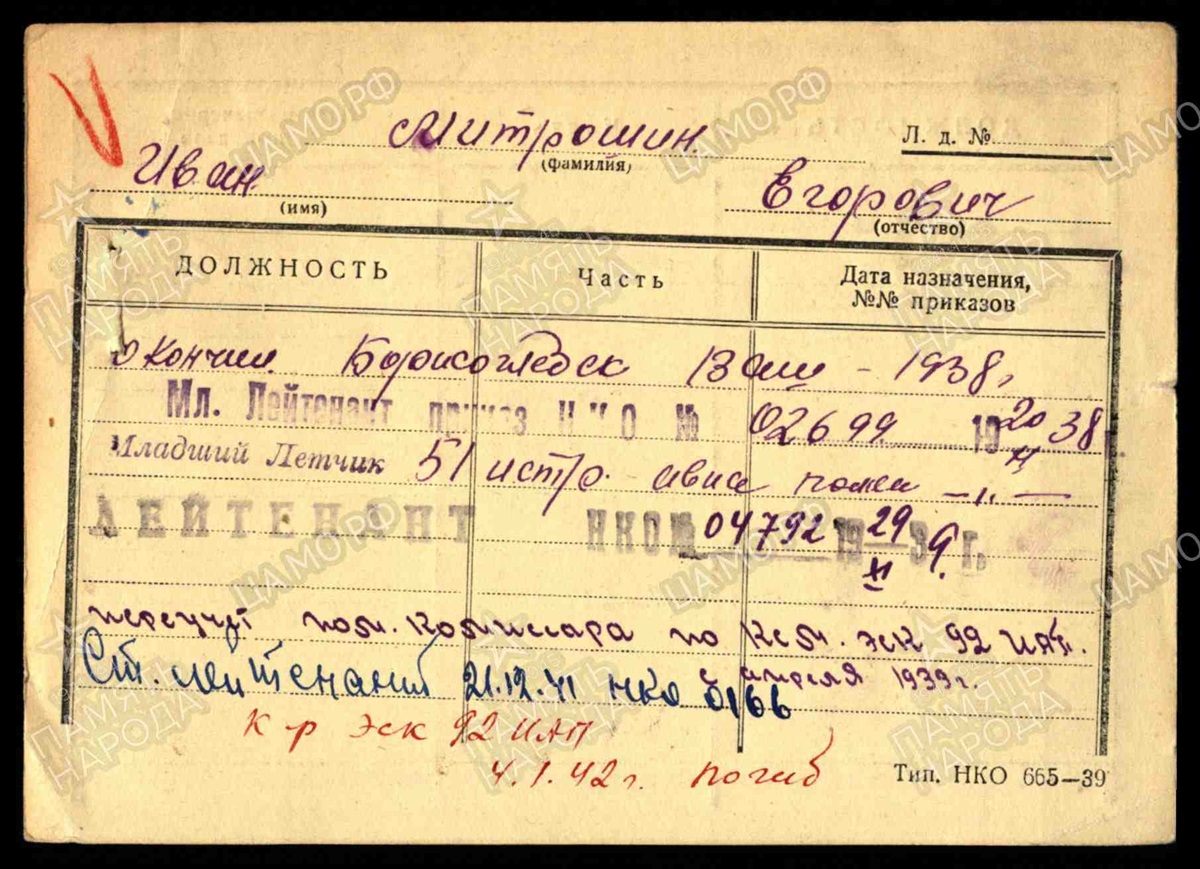 Митрошин
(фамилия)
Л. д. №
Иван
(имя)
Егорович
(отчество)
ДОЛЖНОСТЬ
Часть
Дата назначения,
№№ приказов
окончил Борисоглебск ВАШ - 1938 г.
Мл. Лейтенант приказ НКО № 02699 19 20/XI 38
Младший Летчик 51 истр. авиа полка —„—
ЛЕЙТЕНАНТ НКО № 04792 19 29/XI 39 г.
переучёт пом. комиссара по Ксм. эск 92 ИАП.
с апреля 1939 г.
Ст. лейтенант 21.12.41 НКО 0166
К-р эск 92 ИАП
4.1.42 г. погиб
Тип. НКО 665—39
ЦАМО.РФ
ПАМЯТЬ НАРОДА